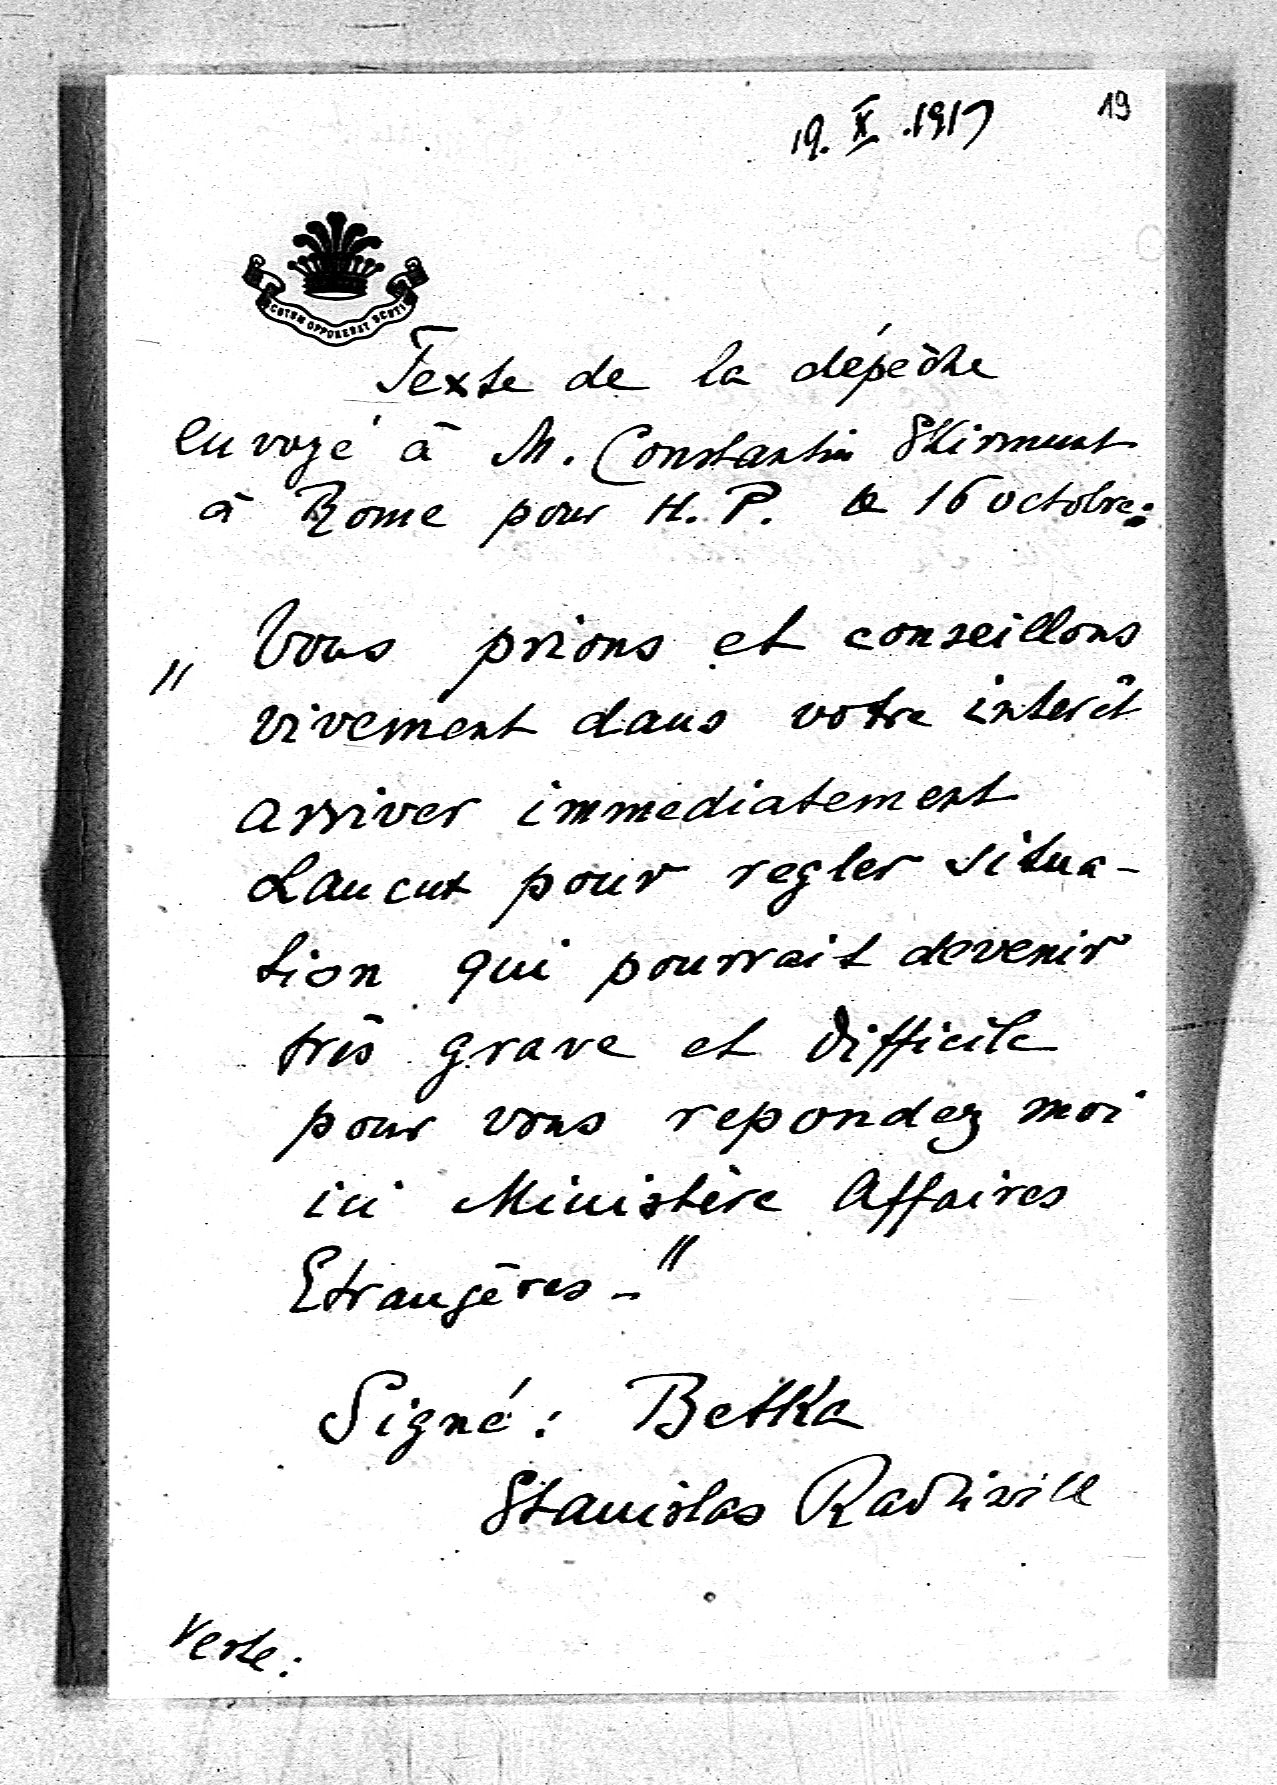 19
19. X. 1917
SCUTUM OPPONEBAT SCUTIS
Texte de la dépèche
envoyé à M. Constantin Skirmunt
à Rome pour H. P. le 16 octobre:
„ Vous prions et conseillons
vivement dans votre interêt
arriver immediatement
Lancut pour regler situa-
tion qui pourrait devenir
très grave et difficile
pour vous repondez moi
ici Ministère Affaires
Etrangères - "
Signé: Betka
Stanislas Radziwill
Verte: